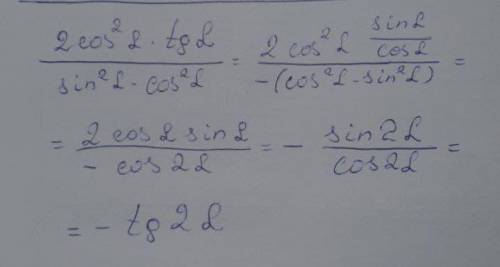 2cos²α · tgα / sin²α - cos²α = 2cos²α sinα/cosα / -(cos²α - sin²α) =
= 2cosα sinα / - cos2α = - sin2α / cos2α =
= - tg2α